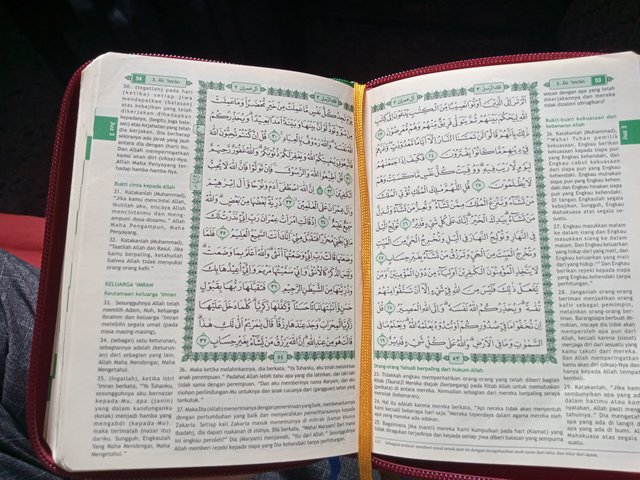 3. Ali 'Imran
53
اَلَمْ تَرَ اِلَى الَّذِيْنَ اُوْتُوْا نَصِيْبًا مِّنَ الْكِتٰبِ يُدْعَوْنَ اِلٰى كِتٰبِ
اللّٰهِ لِيَحْكُمَ بَيْنَهُمْ ثُمَّ يَتَوَلّٰى فَرِيْقٌ مِّنْهُمْ وَهُمْ مُّعْرِضُوْنَ ٢٣
ذٰلِكَ بِاَنَّهُمْ قَالُوْا لَنْ تَمَسَّنَا النَّارُ اِلَّآ اَيَّامًا مَّعْدُوْدٰتٍ وَغَرَّهُمْ
فِيْ دِيْنِهِمْ مَّا كَانُوْا يَفْتَرُوْنَ ٢٤ فَكَيْفَ اِذَا جَمَعْنٰهُمْ
لِيَوْمٍ لَّا رَيْبَ فِيْهِ وَوُفِّيَتْ كُلُّ نَفْسٍ مَّا كَسَبَتْ وَهُمْ
لَا يُظْلَمُوْنَ ٢٥ قُلِ اللّٰهُمَّ مٰلِكَ الْمُلْكِ تُؤْتِى الْمُلْكَ
مَنْ تَشَاۤءُ وَتَنْزِعُ الْمُلْكَ مِمَّنْ تَشَاۤءُ وَتُعِزُّ مَنْ تَشَاۤءُ
وَتُذِلُّ مَنْ تَشَاۤءُ بِيَدِكَ الْخَيْرُ اِنَّكَ عَلٰى كُلِّ شَيْءٍ قَدِيْرٌ ٢٦
تُوْلِجُ الَّيْلَ فِى النَّهَارِ وَتُوْلِجُ النَّهَارَ فِى الَّيْلِ وَتُخْرِجُ الْحَيَّ
مِنَ الْمَيِّتِ وَتُخْرِجُ الْمَيِّتَ مِنَ الْحَيِّ وَتَرْزُقُ مَنْ تَشَاۤءُ
بِغَيْرِ حِسَابٍ ٢٧ لَا يَتَّخِذِ الْمُؤْمِنُوْنَ الْكٰفِرِيْنَ اَوْلِيَاۤءَ مِنْ دُوْنِ
الْمُؤْمِنِيْنَ وَمَنْ يَّفْعَلْ ذٰلِكَ فَلَيْسَ مِنَ اللّٰهِ فِيْ شَيْءٍ اِلَّآ اَنْ
تَتَّقُوْا مِنْهُمْ تُقٰىةً وَيُحَذِّرُكُمُ اللّٰهُ نَفْسَهٗ وَاِلَى اللّٰهِ الْمَصِيْرُ ٢٨
قُلْ اِنْ تُخْفُوْا مَا فِيْ صُدُوْرِكُمْ اَوْ تُبْدُوْهُ يَعْلَمْهُ اللّٰهُ وَيَعْلَمُ مَا فِى
السَّمٰوٰتِ وَمَا فِى الْاَرْضِ وَاللّٰهُ عَلٰى كُلِّ شَيْءٍ قَدِيْرٌ ٢٩
٥٣
Orang-orang Yahudi berpaling dari hukum Allah
23. Tidakkah engkau memperhatikan orang-orang yang telah diberi bagian
Kitab (Taurat)? Mereka diajak (berpegang) pada Kitab Allah untuk memutuskan
(perkara) di antara mereka. Kemudian sebagian dari mereka berpaling seraya
menolak (kebenaran).
24. Hal itu adalah karena mereka berkata, "Api neraka tidak akan menyentuh
kami kecuali beberapa hari saja." Mereka terperdaya dalam agama mereka oleh
apa yang mereka ada-adakan.
25. Bagaimana jika (nanti) mereka Kami kumpulkan pada hari (Kiamat) yang
tidak diragukan terjadinya dan kepada setiap jiwa diberi balasan yang sempurna
sesuai dengan apa yang telah
dikerjakannya dan mereka
tidak dizalimi (dirugikan)?
Bukti-bukti kekuasaan dan
kebenaran Allah
26. Katakanlah (Muhammad),
"Wahai Tuhan pemilik
kekuasaan, Engkau berikan
kekuasaan kepada siapa pun
yang Engkau kehendaki, dan
Engkau cabut kekuasaan
dari siapa pun yang Engkau
kehendaki. Engkau muliakan
siapa pun yang Engkau kehen-
daki dan Engkau hinakan siapa
pun yang Engkau kehendaki.
Di tangan Engkaulah segala
kebajikan. Sungguh, Engkau
Mahakuasa atas segala se-
suatu.
27. Engkau masukkan malam
ke dalam siang dan Engkau
masukkan siang ke dalam
malam. Dan Engkau keluarkan
yang hidup dari yang mati,
dan Engkau keluarkan yang mati
dari yang hidup. Dan Engkau
berikan rezeki kepada siapa
yang Engkau kehendaki tanpa
perhitungan."
28. Janganlah orang-orang
beriman menjadikan orang
kafir sebagai pemimpin,
melainkan orang-orang ber-
iman. Barang siapa berbuat de-
mikian, niscaya dia tidak akan
memperoleh apa pun dari
Allah, kecuali karena (siasat)
menjaga diri dari sesuatu yang
kamu takuti dari mereka.
Dan Allah memperingatkan
kamu akan diri (siksa)-Nya,
dan hanya kepada Allah tempat
kembali.
29. Katakanlah, "Jika kamu
sembunyikan apa yang ada
dalam hatimu atau kamu
nyatakan, Allah pasti menge-
tahuinya." Dia mengetahui
apa yang ada di langit dan
apa yang ada di bumi. Allah
Mahakuasa atas segala se-
suatu.
54
3. Ali 'Imran
JUZ 3
يَوْمَ تَجِدُ كُلُّ نَفْسٍ مَّا عَمِلَتْ مِنْ خَيْرٍ مُّحْضَرًا وَمَا عَمِلَتْ
مِنْ سُوْۤءٍ تَوَدُّ لَوْ اَنَّ بَيْنَهَا وَبَيْنَهٗٓ اَمَدًاۢ بَعِيْدًا وَيُحَذِّرُكُمُ
اللّٰهُ نَفْسَهٗ وَاللّٰهُ رَءُوْفٌۢ بِالْعِبَادِ ٣٠ قُلْ اِنْ كُنْتُمْ تُحِبُّوْنَ اللّٰهَ
فَاتَّبِعُوْنِيْ يُحْبِبْكُمُ اللّٰهُ وَيَغْفِرْ لَكُمْ ذُنُوْبَكُمْ وَاللّٰهُ غَفُوْرٌ
رَّحِيْمٌ ٣١ قُلْ اَطِيْعُوا اللّٰهَ وَالرَّسُوْلَ فَاِنْ تَوَلَّوْا فَاِنَّ اللّٰهَ لَا يُحِبُّ
الْكٰفِرِيْنَ ٣٢ اِنَّ اللّٰهَ اصْطَفٰىٓ اٰدَمَ وَنُوْحًا وَّاٰلَ اِبْرٰهِيْمَ
وَاٰلَ عِمْرٰنَ عَلَى الْعٰلَمِيْنَ ٣٣ ذُرِّيَّةًۢ بَعْضُهَا مِنْۢ بَعْضٍ وَاللّٰهُ
سَمِيْعٌ عَلِيْمٌ ٣٤ اِذْ قَالَتِ امْرَاَتُ عِمْرٰنَ رَبِّ اِنِّيْ نَذَرْتُ لَكَ
مَا فِيْ بَطْنِيْ مُحَرَّرًا فَتَقَبَّلْ مِنِّيْ اِنَّكَ اَنْتَ السَّمِيْعُ الْعَلِيْمُ ٣٥
فَلَمَّا وَضَعَتْهَا قَالَتْ رَبِّ اِنِّيْ وَضَعْتُهَآ اُنْثٰى وَاللّٰهُ اَعْلَمُ بِمَا وَضَعَتْ
وَلَيْسَ الذَّكَرُ كَالْاُنْثٰى وَاِنِّيْ سَمَّيْتُهَا مَرْيَمَ وَاِنِّيْٓ اُعِيْذُهَا بِكَ
وَذُرِّيَّتَهَا مِنَ الشَّيْطٰنِ الرَّجِيْمِ ٣٦ فَتَقَبَّلَهَا رَبُّهَا بِقَبُوْلٍ
حَسَنٍ وَّاَنْۢبَتَهَا نَبَاتًا حَسَنًا وَّكَفَّلَهَا زَكَرِيَّا كُلَّمَا دَخَلَ عَلَيْهَا
زَكَرِيَّا الْمِحْرَابَ وَجَدَ عِنْدَهَا رِزْقًا قَالَ يٰمَرْيَمُ اَنّٰى لَكِ هٰذَا
قَالَتْ هُوَ مِنْ عِنْدِ اللّٰهِ اِنَّ اللّٰهَ يَرْزُقُ مَنْ يَّشَاۤءُ بِغَيْرِ حِسَابٍ ٣٧
٥٤
30. (Ingatlah) pada hari
(ketika) setiap jiwa
mendapatkan (balasan)
atas kebajikan yang telah
dikerjakan dihadapkan
kepadanya, (begitu juga balas-
an) atas kejahatan yang telah
dia kerjakan. Dia berharap
sekiranya ada jarak yang jauh
antara dia dengan (hari) itu.
Dan Allah memperingatkan
kamu akan diri (siksa)-Nya.
Allah Maha Penyayang ter-
hadap hamba-hamba-Nya.
Bukti cinta kepada Allah
31. Katakanlah (Muhammad),
"Jika kamu mencintai Allah,
ikutilah aku, niscaya Allah
mencintaimu dan meng-
ampuni dosa-dosamu." Allah
Maha Pengampun, Maha
Penyayang.
32. Katakanlah (Muhammad),
"Taatilah Allah dan Rasul. Jika
kamu berpaling, ketahuilah
bahwa Allah tidak menyukai
orang-orang kafir."
KELUARGA 'IMRAN
Keutamaan keluarga 'Imran
33. Sesungguhnya Allah telah
memilih Adam, Nuh, keluarga
Ibrahim dan keluarga Imran
melebihi segala umat (pada
masa masing-masing).
34. (sebagai) satu keturunan,
sebagiannya adalah (keturun-
an) dari sebagian yang lain.
Allah Maha Mendengar, Maha
Mengetahui.
35. (Ingatlah), ketika istri
Imran berkata, "Ya Tuhanku,
sesungguhnya aku bernazar
kepada-Mu, apa (janin)
yang dalam kandunganku
(kelak) menjadi hamba yang
mengabdi (kepada-Mu),
maka terimalah (nazar itu)
dariku. Sungguh, Engkaulah
Yang Maha Mendengar, Maha
Mengetahui."
36. Maka ketika melahirkannya, dia berkata, "Ya Tuhanku, aku telah melahirkan
anak perempuan." Padahal Allah lebih tahu apa yang dia lahirkan, dan laki-laki
tidak sama dengan perempuan. "Dan aku memberinya nama Maryam, dan aku
mohon perlindungan-Mu untuknya dan anak cucunya dari (gangguan) setan yang
terkutuk."
37. Maka Dia (Allah) menerimanya dengan penerimaan yang baik, membesarkannya
dengan pertumbuhan yang baik dan menyerahkan pemeliharaannya kepada
Zakaria. Setiap kali Zakaria masuk menemuinya di mihrab (kamar khusus
ibadah), dia dapati makanan di sisinya. Dia berkata, "Wahai Maryam! Dari mana
ini engkau peroleh?" Dia (Maryam) menjawab, "Itu dari Allah." Sesungguhnya
Allah memberi rezeki kepada siapa yang Dia kehendaki tanpa perhitungan.